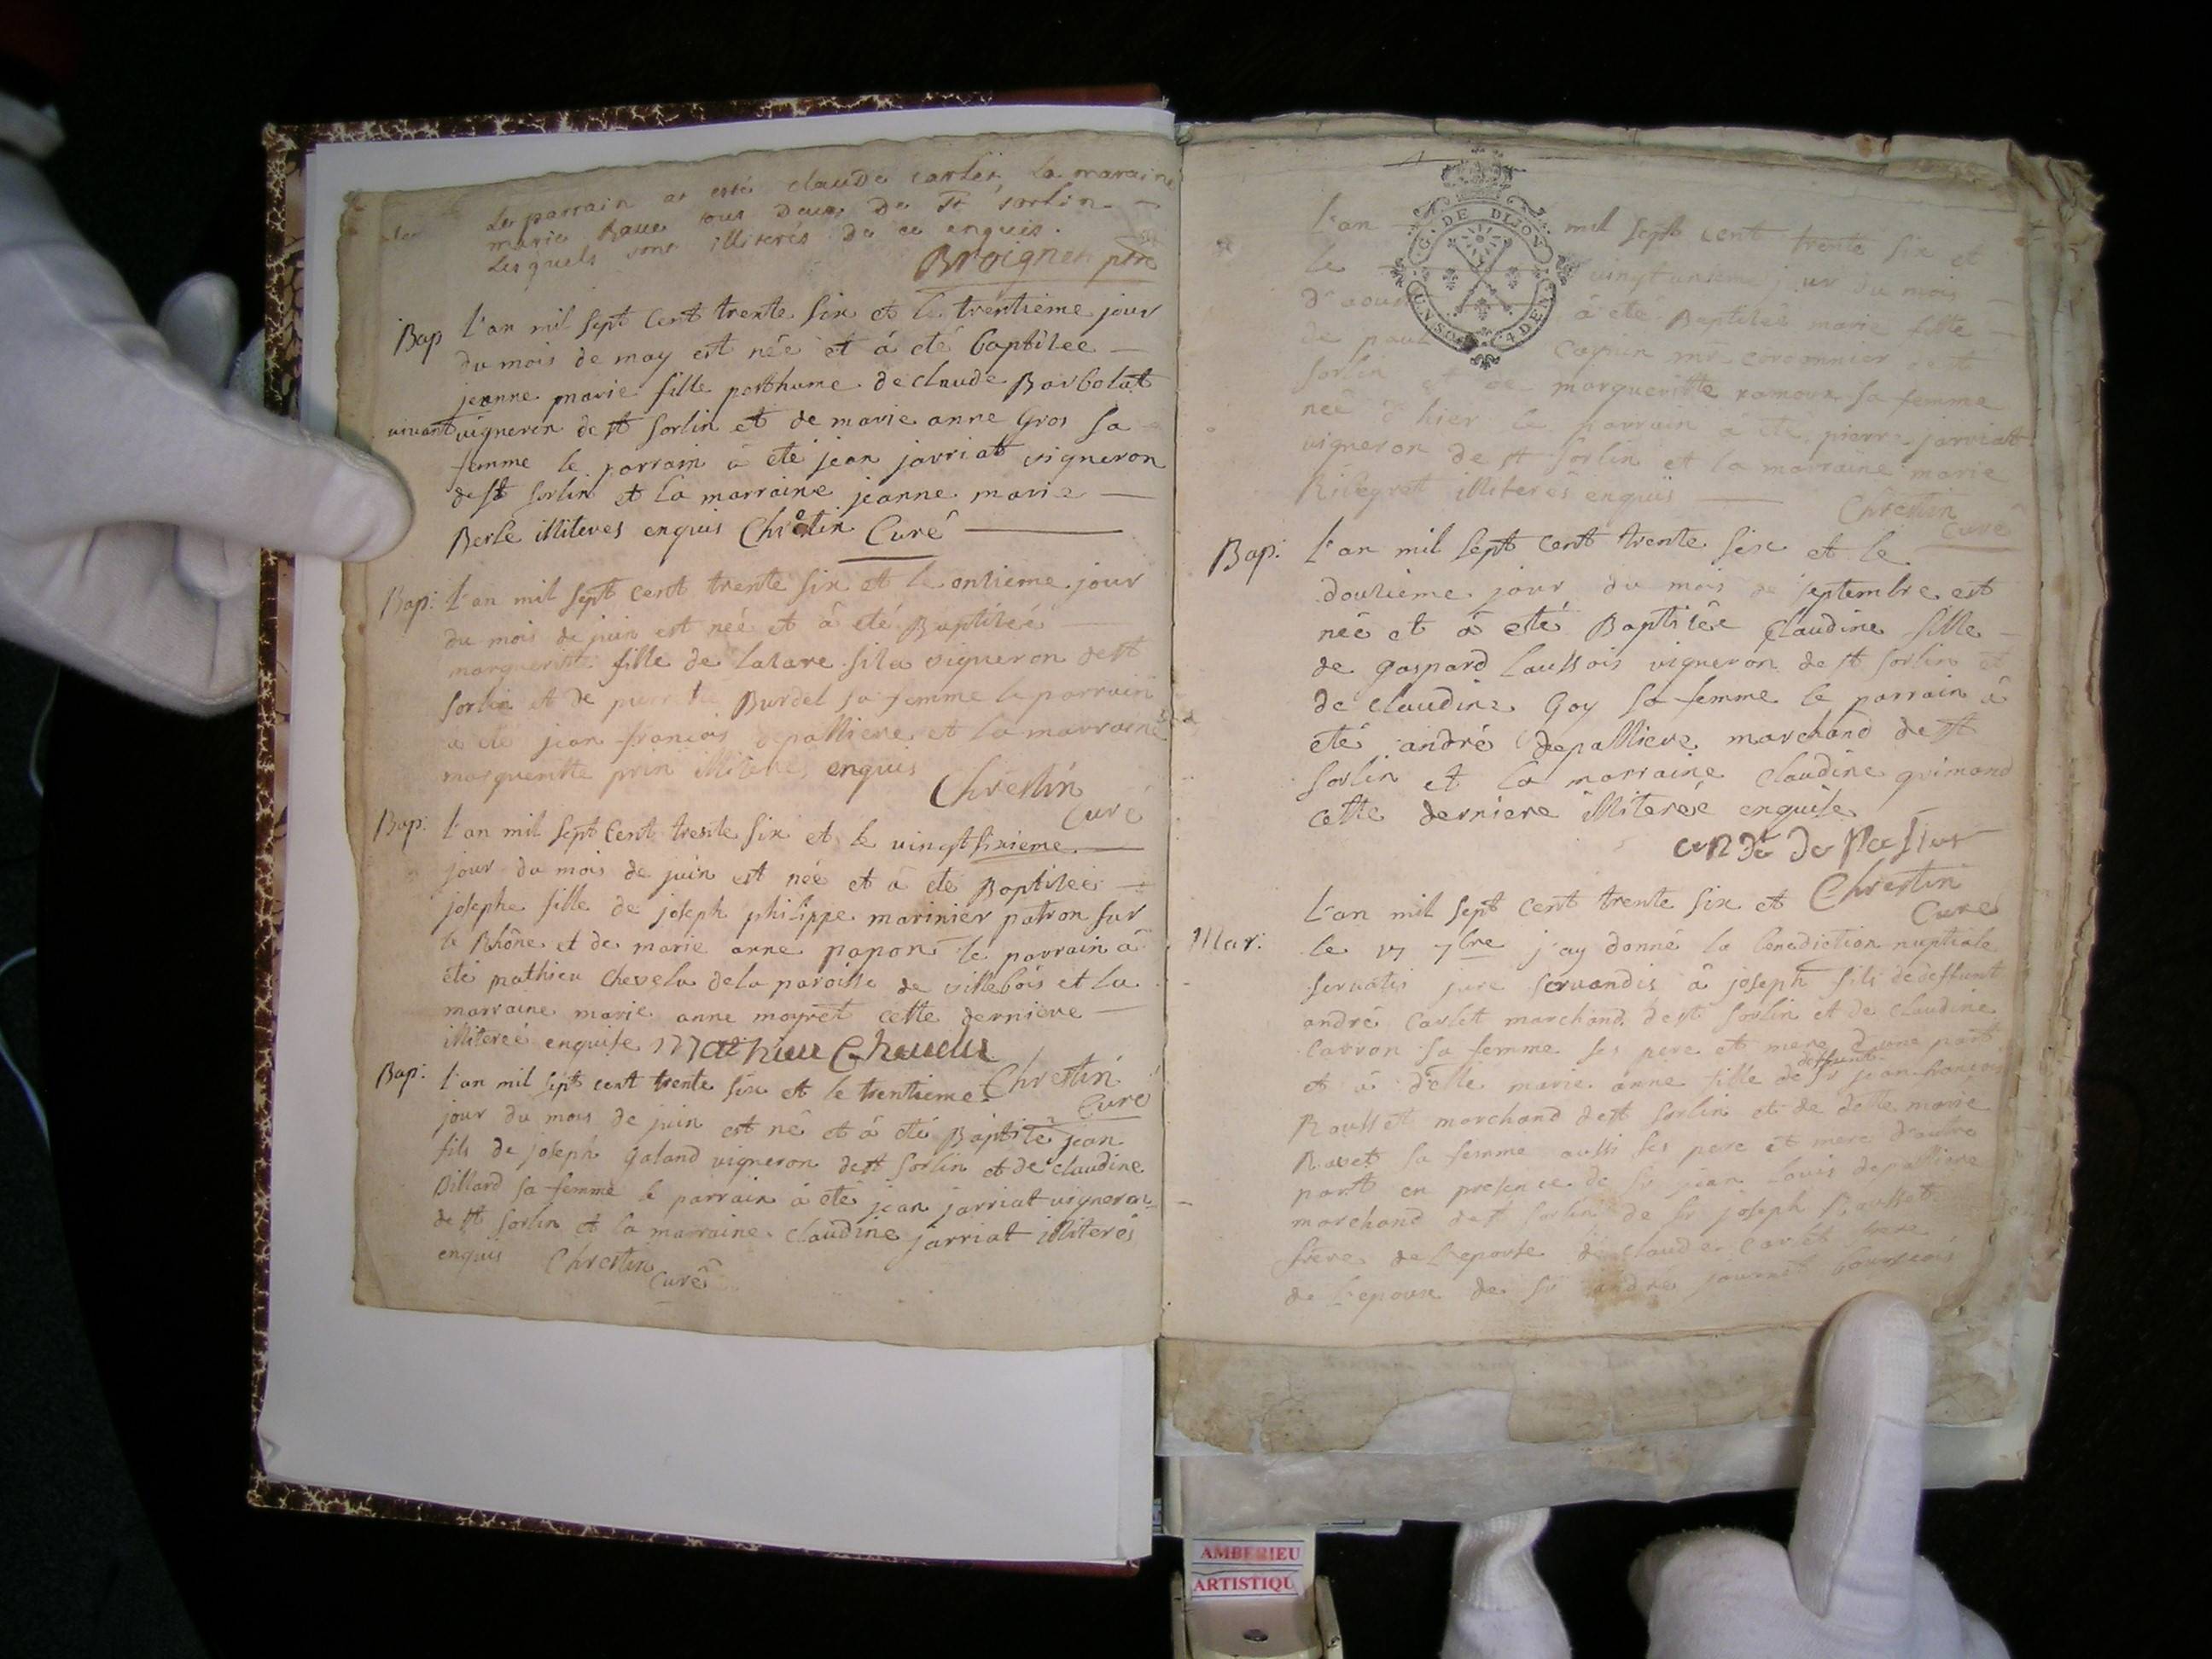 Le parrain at esté claude carlet La maraine
marie Raue tous deux de St sorlin
Lesquels sont illiterés de ce enquis.
Broignet ptre
Bap l'an mil sept cent trente six et le trentieme jour
du mois de may est née et à eté baptisee
jeanne marie fille posthume de claude Barbolat
vivant vigneron de st sorlin et de marie anne Gros sa
femme le parrain à eté jean jarriat vigneron
de st sorlin et la marraine jeanne marie
Berle illiteres enquis Chrêtin Curé
Bap: l'an mil sept cent trente six et le onzieme jour
du mois de juin est néé et à eté Baptiséé
margueritte fille de Lazare sila vigneron de st
sorlin et de pierrette Burdel sa femme le parrain
a eté jean francois depalliere et la marraine
margueritte prin illiteres enquis
Chrestin
Curé
Bap: l'an mil sept cent trente six et le vingt sixieme
jour du mois de juin est néé et à eté Baptisee
josephe fille de joseph philippe marinier patron sur
le Rhône et de marie anne papon le parrain à
été mathieu chevelu de la paroisse de villebois et la
marraine marie anne mayret cette derniere
illitereé enquise Mathieu Cheuelu
Chrestin
Curé
Bap: l'an mil sept cent trente six et le trentieme
jour du mois de juin est né et à eté Baptisé jean
fils de joseph Galand vigneron de st sorlin et de claudine
Billard sa femme le parrain à eté jean jarriat vigneron
de st sorlin et la marraine claudine jarriat illiterés
enquis Chrestin
Curé
G. DE DIJON
l'an mil sept cent trente six et
le vingt unieme jour du mois
d'aoust à eté Baptisée marie fille
de paul Cognin mr cordonnier de st
sorlin et de margueritte ramoux sa femme
neé d'hier le parrain à eté pierre jarriat
vigneron de st sorlin et la marraine marie
illiterés enquis
Chrestin
Curé
Bap: l'an mil sept cent trente six et le
douzieme jour du mois de septembre est
néé et à esté Baptisée Claudine fille
de gaspard Laussois vigneron de st sorlin et
de claudine Goy sa femme le parrain à
eté andré depalliere marchand de st
sorlin et la marraine Claudine grimand
cette derniere illitereé enquise
Chrestin
Curé
Mar: L'an mil sept cent trente six et
le 17 7bre j'ay donné la benediction nuptiale
servatis jure servandis à joseph fils de deffunt
andré Carlet marchand de st sorlin et de claudine
Carron sa femme ses pere et mere d'une part
et à delle marie anne fille de deffunt sr jean francois
Rousset marchand de st sorlin et de delle marie
Ravet sa femme aussi ses pere et mere d'autre
part en presence de sr jean Louis depalliere
marchand de st sorlin de sr joseph Rousset
frere de l'epouse de claude Carlet frere
de l'epoux de sr andré journet bourgeois
AMBERIEU
ARTISTIQU